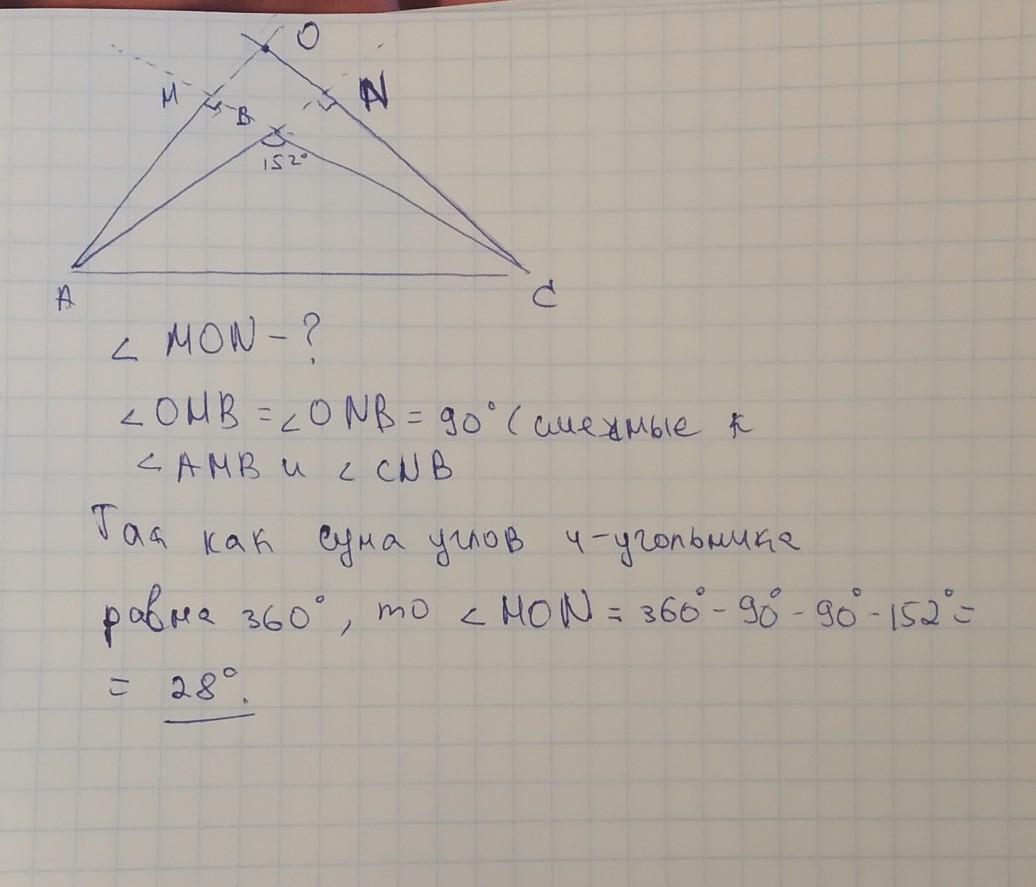 O
M
N
B
152°
A
C
∠ MON - ?
∠OMB = ∠ONB = 90° (смежные к
∠AMB и ∠CNB
Так как сума углов 4-угольника
равна 360°, то ∠MON = 360° - 90° - 90° - 152° =
= 28°.